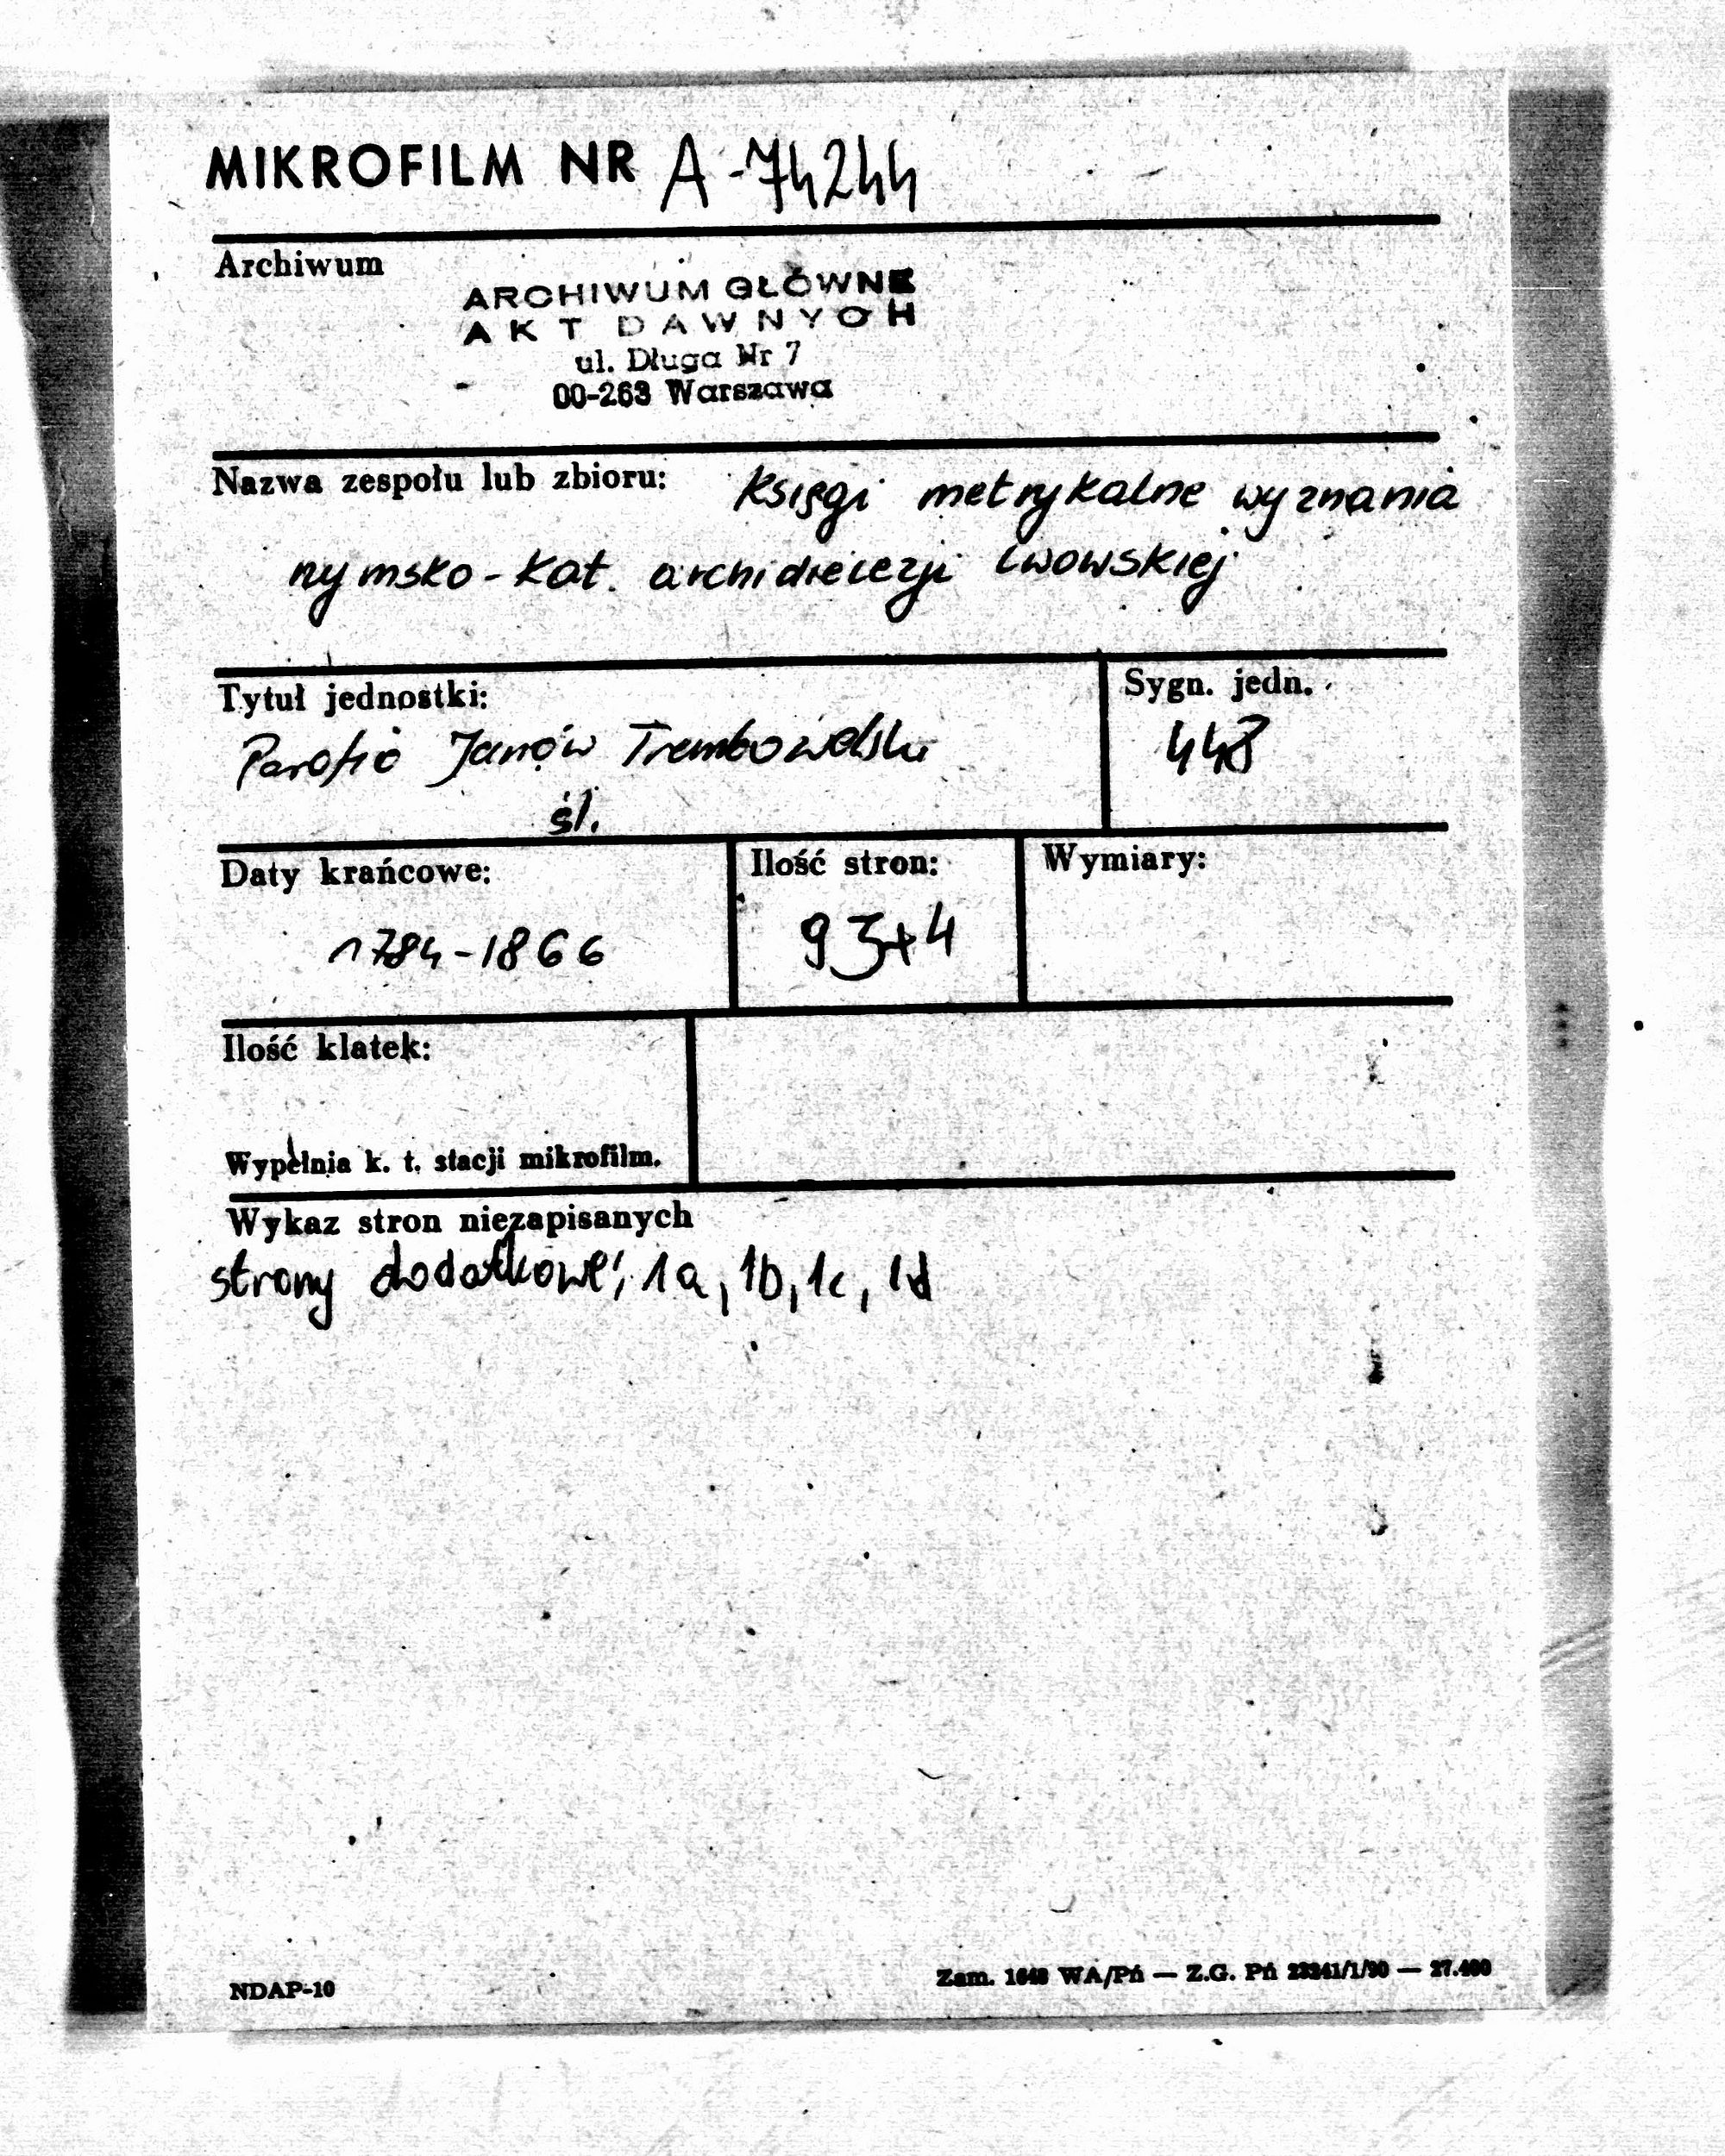 MIKROFILM NR A-74244
Archiwum
ARCHIWUM GŁÓWNE
AKT DAWNYCH
ul. Długa Nr 7
00-263 Warszawa
Nazwa zespołu lub zbioru: Księgi metrykalne wyznania
rzymsko-kat. archidiecezji lwowskiej
Tytuł jednostki:
Sygn. jedn.
Parafia Janów Trembowelski
448
śl.
Daty krańcowe:
Ilość stron:
Wymiary:
1784-1866
93+4
Ilość klatek:
Wypełnia k. t. stacji mikrofilm.
Wykaz stron niezapisanych
strony dodatkowe; 1a, 1b, 1c, 1d
NDAP-10
Zam. 1648 WA/Pń — Z.G. Pń 23241/1/90 — 27.400